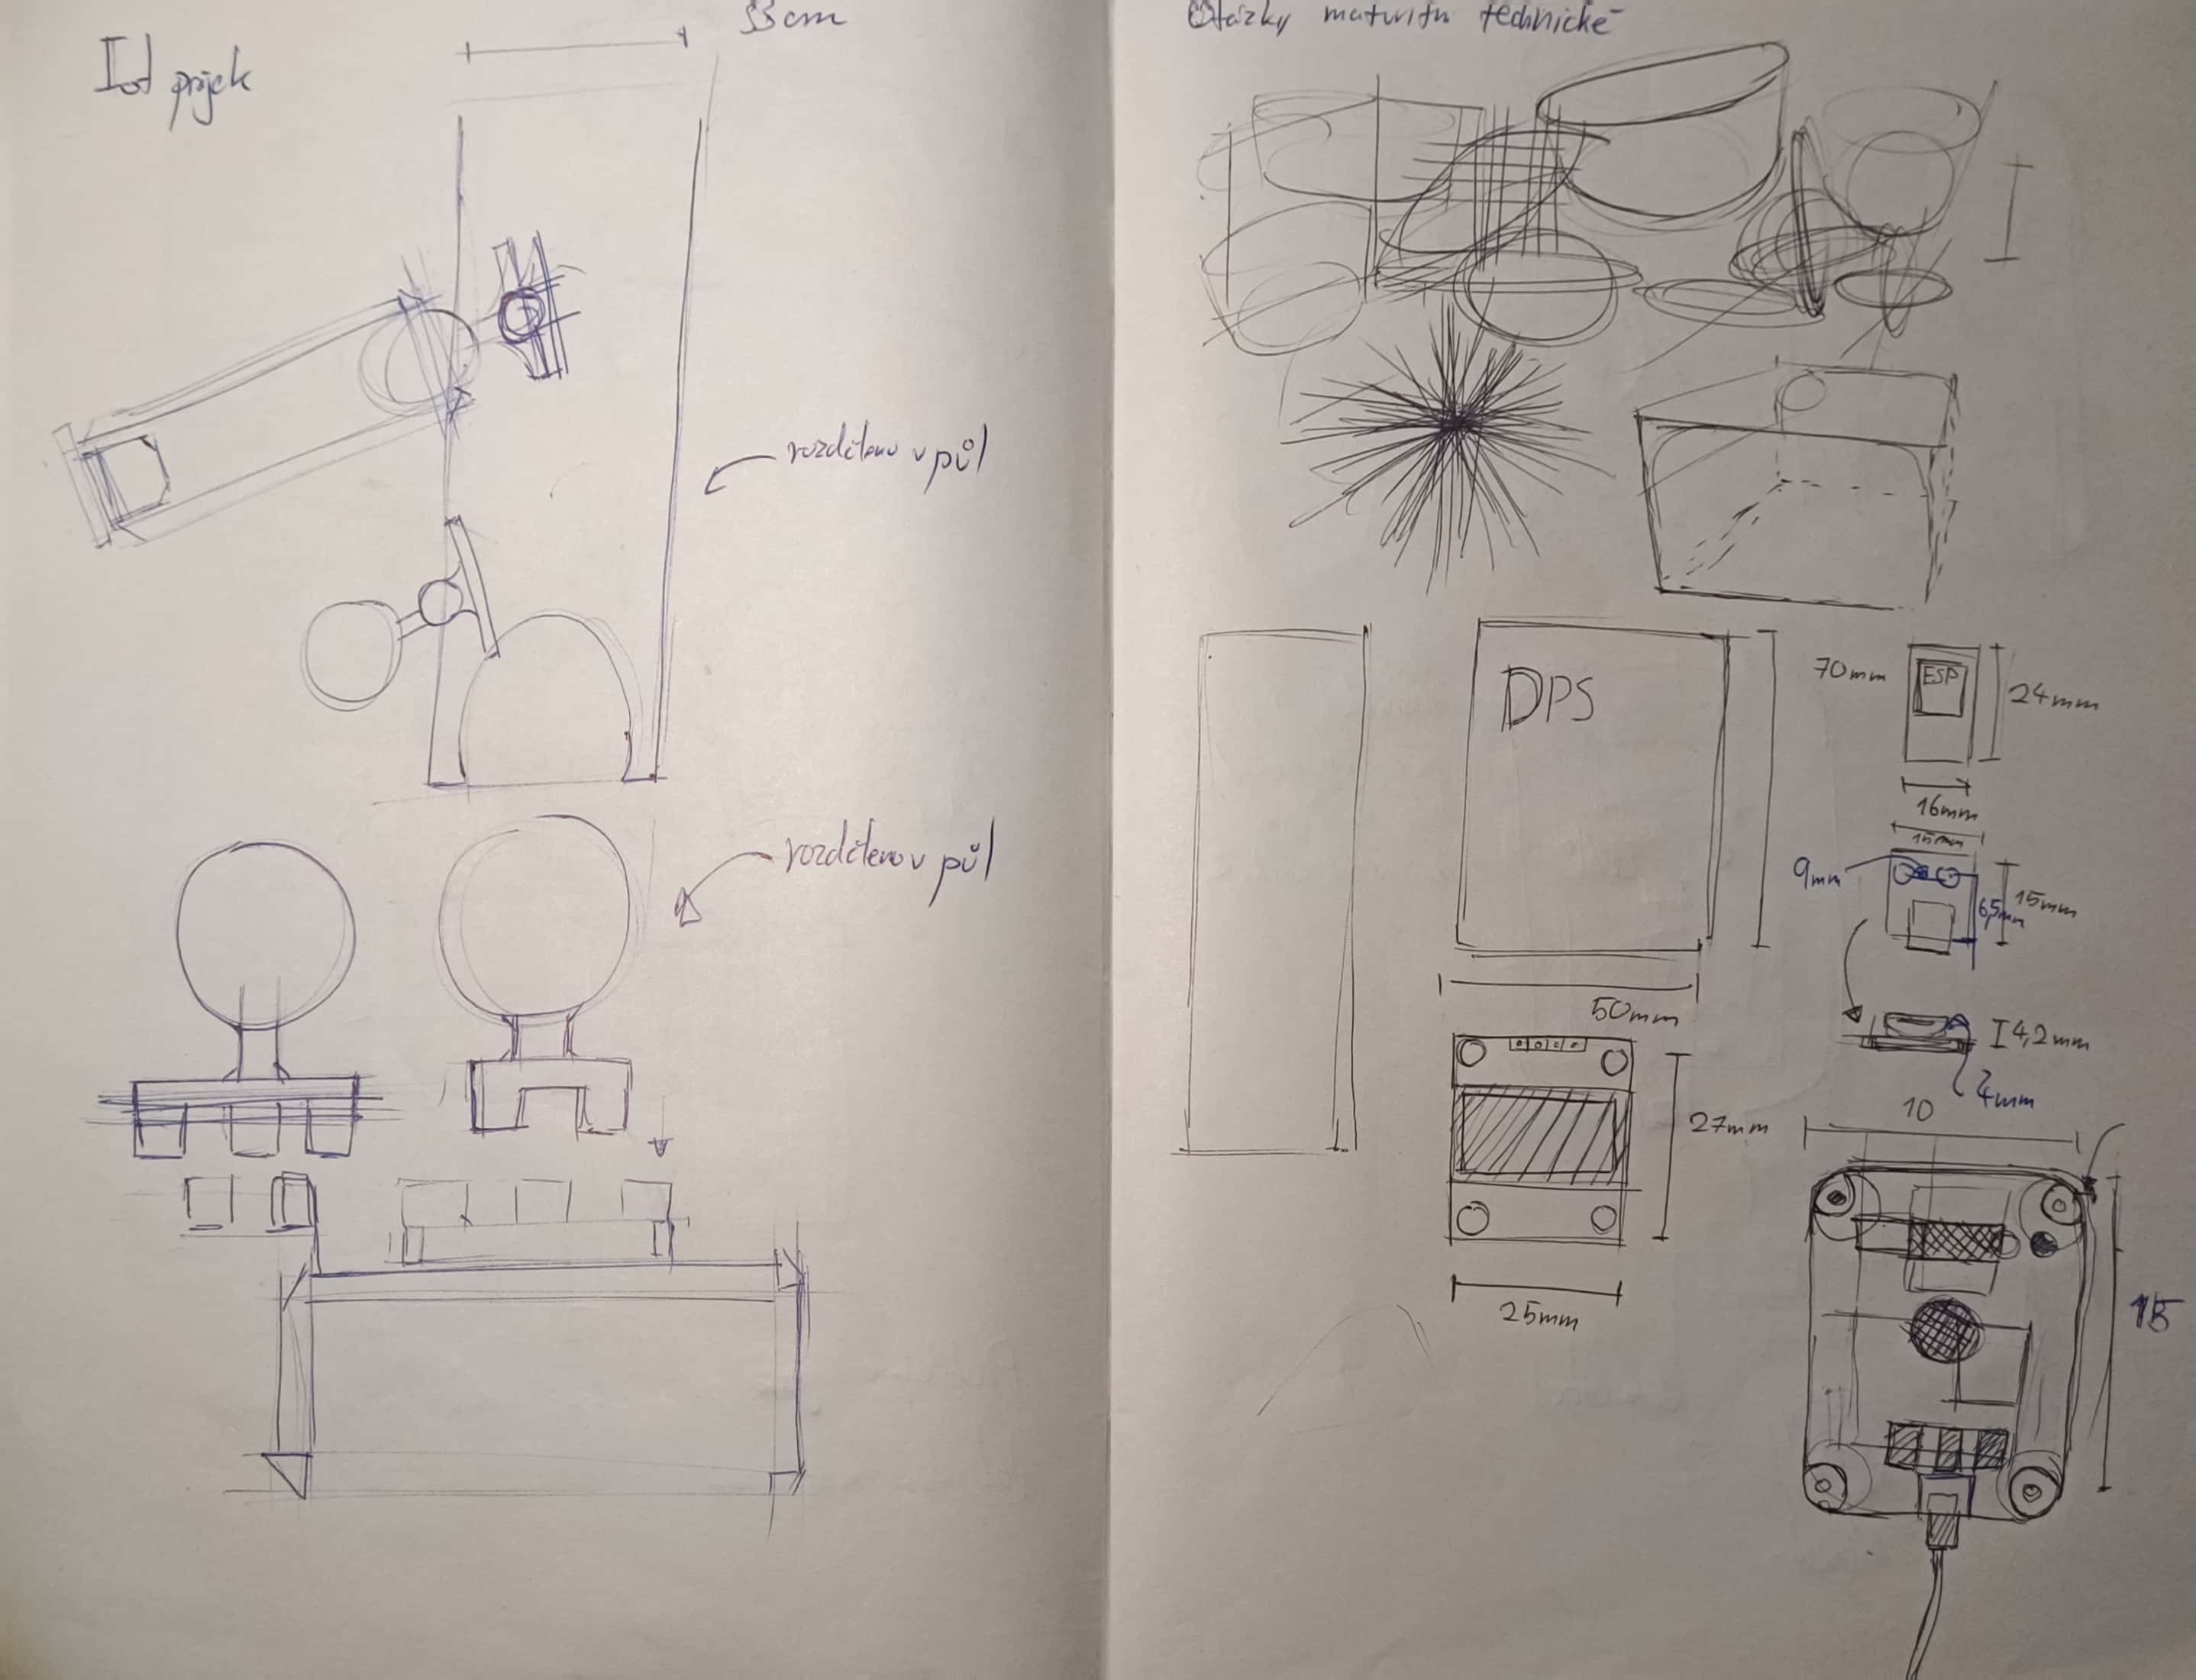 IoT projek
33cm
rozděleno v půl
rozděleno v půl
Otázky maturitu technické
DPS
70mm
50mm
ESP
24mm
16mm
15mm
9mm
15mm
6,5mm
4,2mm
4mm
27mm
25mm
10
15